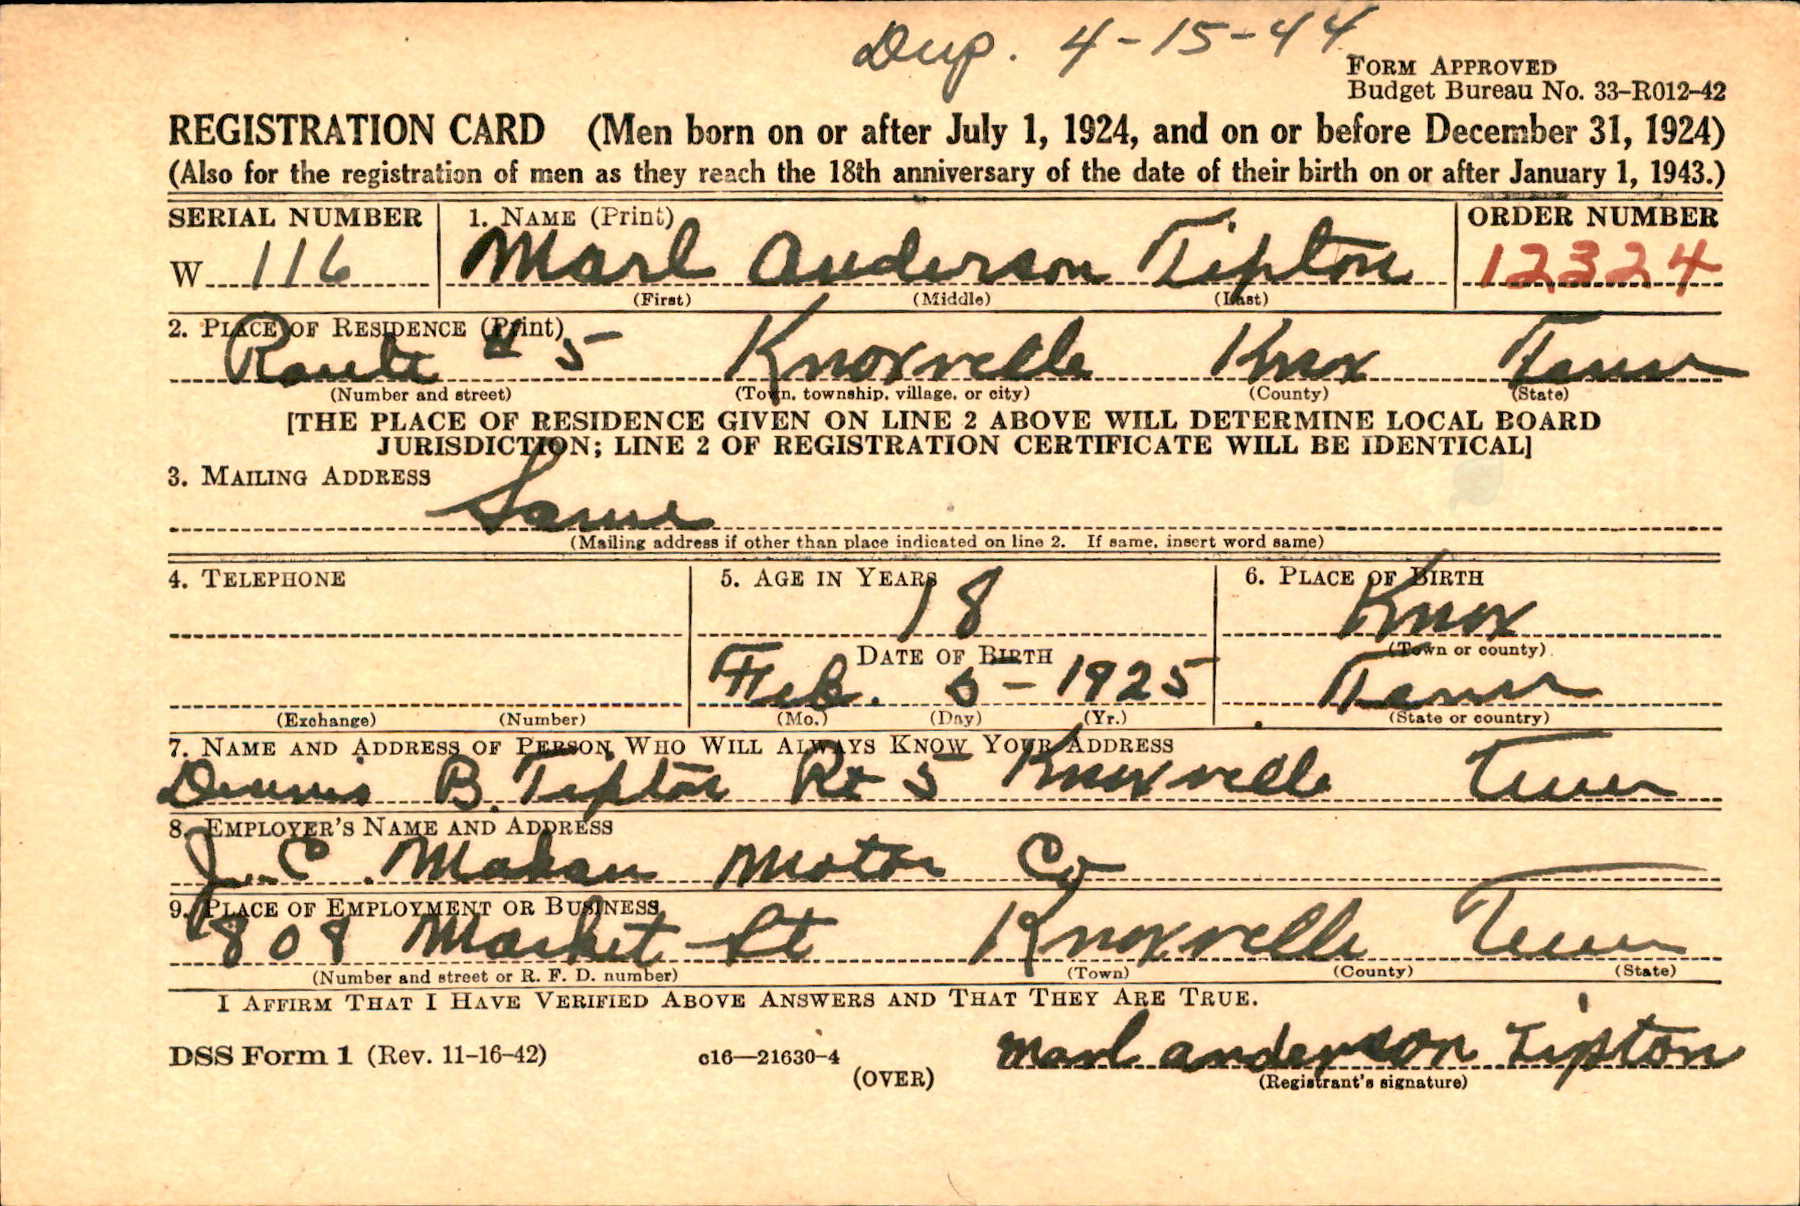 Dup. 4-15-44
FORM APPROVED
Budget Bureau No. 33-R012-42
REGISTRATION CARD (Men born on or after July 1, 1924, and on or before December 31, 1924)
(Also for the registration of men as they reach the 18th anniversary of the date of their birth on or after January 1, 1943.)
SERIAL NUMBER 1. NAME (Print) ORDER NUMBER
W 116 Marl Anderson Tipton 12324
(First) (Middle) (Last)
2. PLACE OF RESIDENCE (Print)
Route # 5 Knoxville Knox Tenn
(Number and street) (Town, township, village, or city) (County) (State)
[THE PLACE OF RESIDENCE GIVEN ON LINE 2 ABOVE WILL DETERMINE LOCAL BOARD
JURISDICTION; LINE 2 OF REGISTRATION CERTIFICATE WILL BE IDENTICAL]
3. MAILING ADDRESS
Same
(Mailing address if other than place indicated on line 2. If same, insert word same)
4. TELEPHONE 5. AGE IN YEARS 6. PLACE OF BIRTH
18 Knox
DATE OF BIRTH (Town or county)
Feb. 5 - 1925 Tenn
(Exchange) (Number) (Mo.) (Day) (Yr.) (State or country)
7. NAME AND ADDRESS OF PERSON WHO WILL ALWAYS KNOW YOUR ADDRESS
Dennis B. Tipton Rt 5 Knoxville Tenn
8. EMPLOYER'S NAME AND ADDRESS
J. C. Mahan Motor Co
9. PLACE OF EMPLOYMENT OR BUSINESS
808 Market St Knoxville Tenn
(Number and street or R. F. D. number) (Town) (County) (State)
I AFFIRM THAT I HAVE VERIFIED ABOVE ANSWERS AND THAT THEY ARE TRUE.
DSS Form 1 (Rev. 11-16-42) c16—21630-4 Marl Anderson Tipton
(OVER) (Registrant's signature)